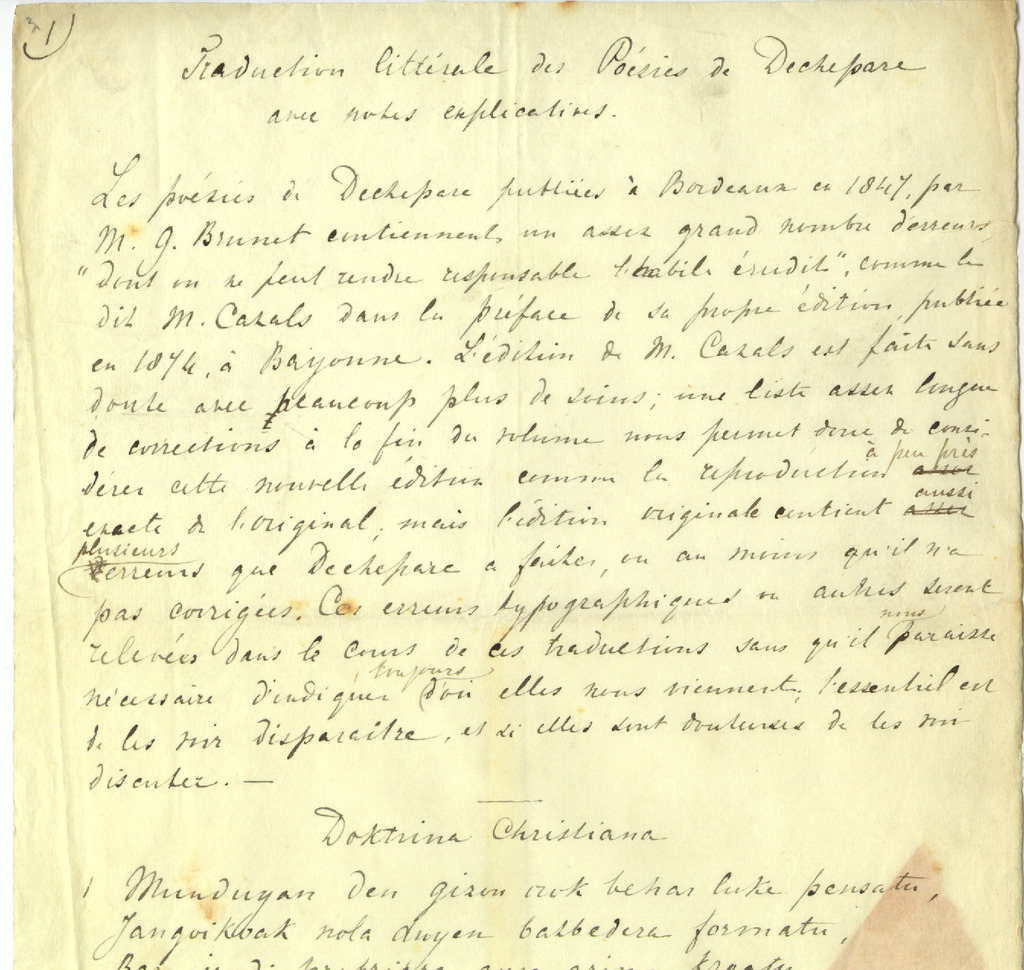 1)
Traduction littérale des Poésies de Dechepare
avec notes explicatives.
Les poésies de Dechepare publiées à Bordeaux en 1847, par
M. G. Brunet contiennent un assez grand nombre d'erreurs,
"dont on ne peut rendre responsable l'habile érudit", comme le
dit M. Cazals dans la préface de sa propre édition, publiée
en 1874, à Bayonne. L'édition de M. Cazals est faite sans
doute avec beaucoup plus de soins; une liste assez longue
de corrections à la fin du volume nous permet donc de consi-
dérer cette nouvelle édition comme la reproduction à peu près
exacte de l'original; mais l'édition originale contient aussi
plusieurs erreurs que Dechepare a faites, ou au moins qu'il n'a
pas corrigées. Ces erreurs typographiques ou autres seront
relevées dans le cours de ces traductions sans qu'il nous paraisse
nécessaire d'indiquer toujours d'où elles nous viennent; l'essentiel est
de les voir disparaître, et si elles sont douteuses de les voir
discuter. —
Doktrina Christiana
1 Munduyan den gizon orok behar luke pensatu,
Jangoikoak nola duyen batbedera formatu,